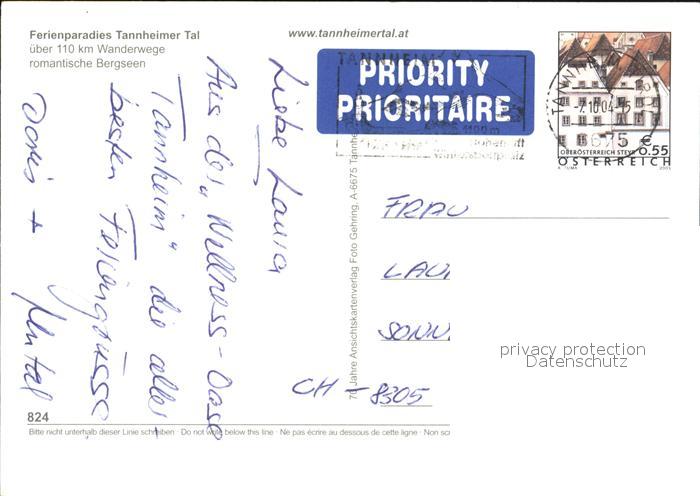 Ferienparadies Tannheimer Tal
über 110 km Wanderwege
romantische Bergseen
www.tannheimertal.at
PRIORITY
PRIORITAIRE
TANNHEIM
-7.10.04-15
6675
€ 0.55
OBERÖSTERREICH STEYR
ÖSTERREICH
2003
Liebe Laura
Aus der „Wellness-Oase
Tannheim" die aller-
besten Feriengrüsse
Doris +
70 Jahre Ansichtskartenverlag Foto Gehring, A-6675 Tannhe
FRAU
LAU
SONN
CH - 8305
privacy protection
Datenschutz
824
Bitte nicht unterhalb dieser Linie schreiben · Do not write below this line · Ne pas écrire au dessous de cette ligne · Non sc